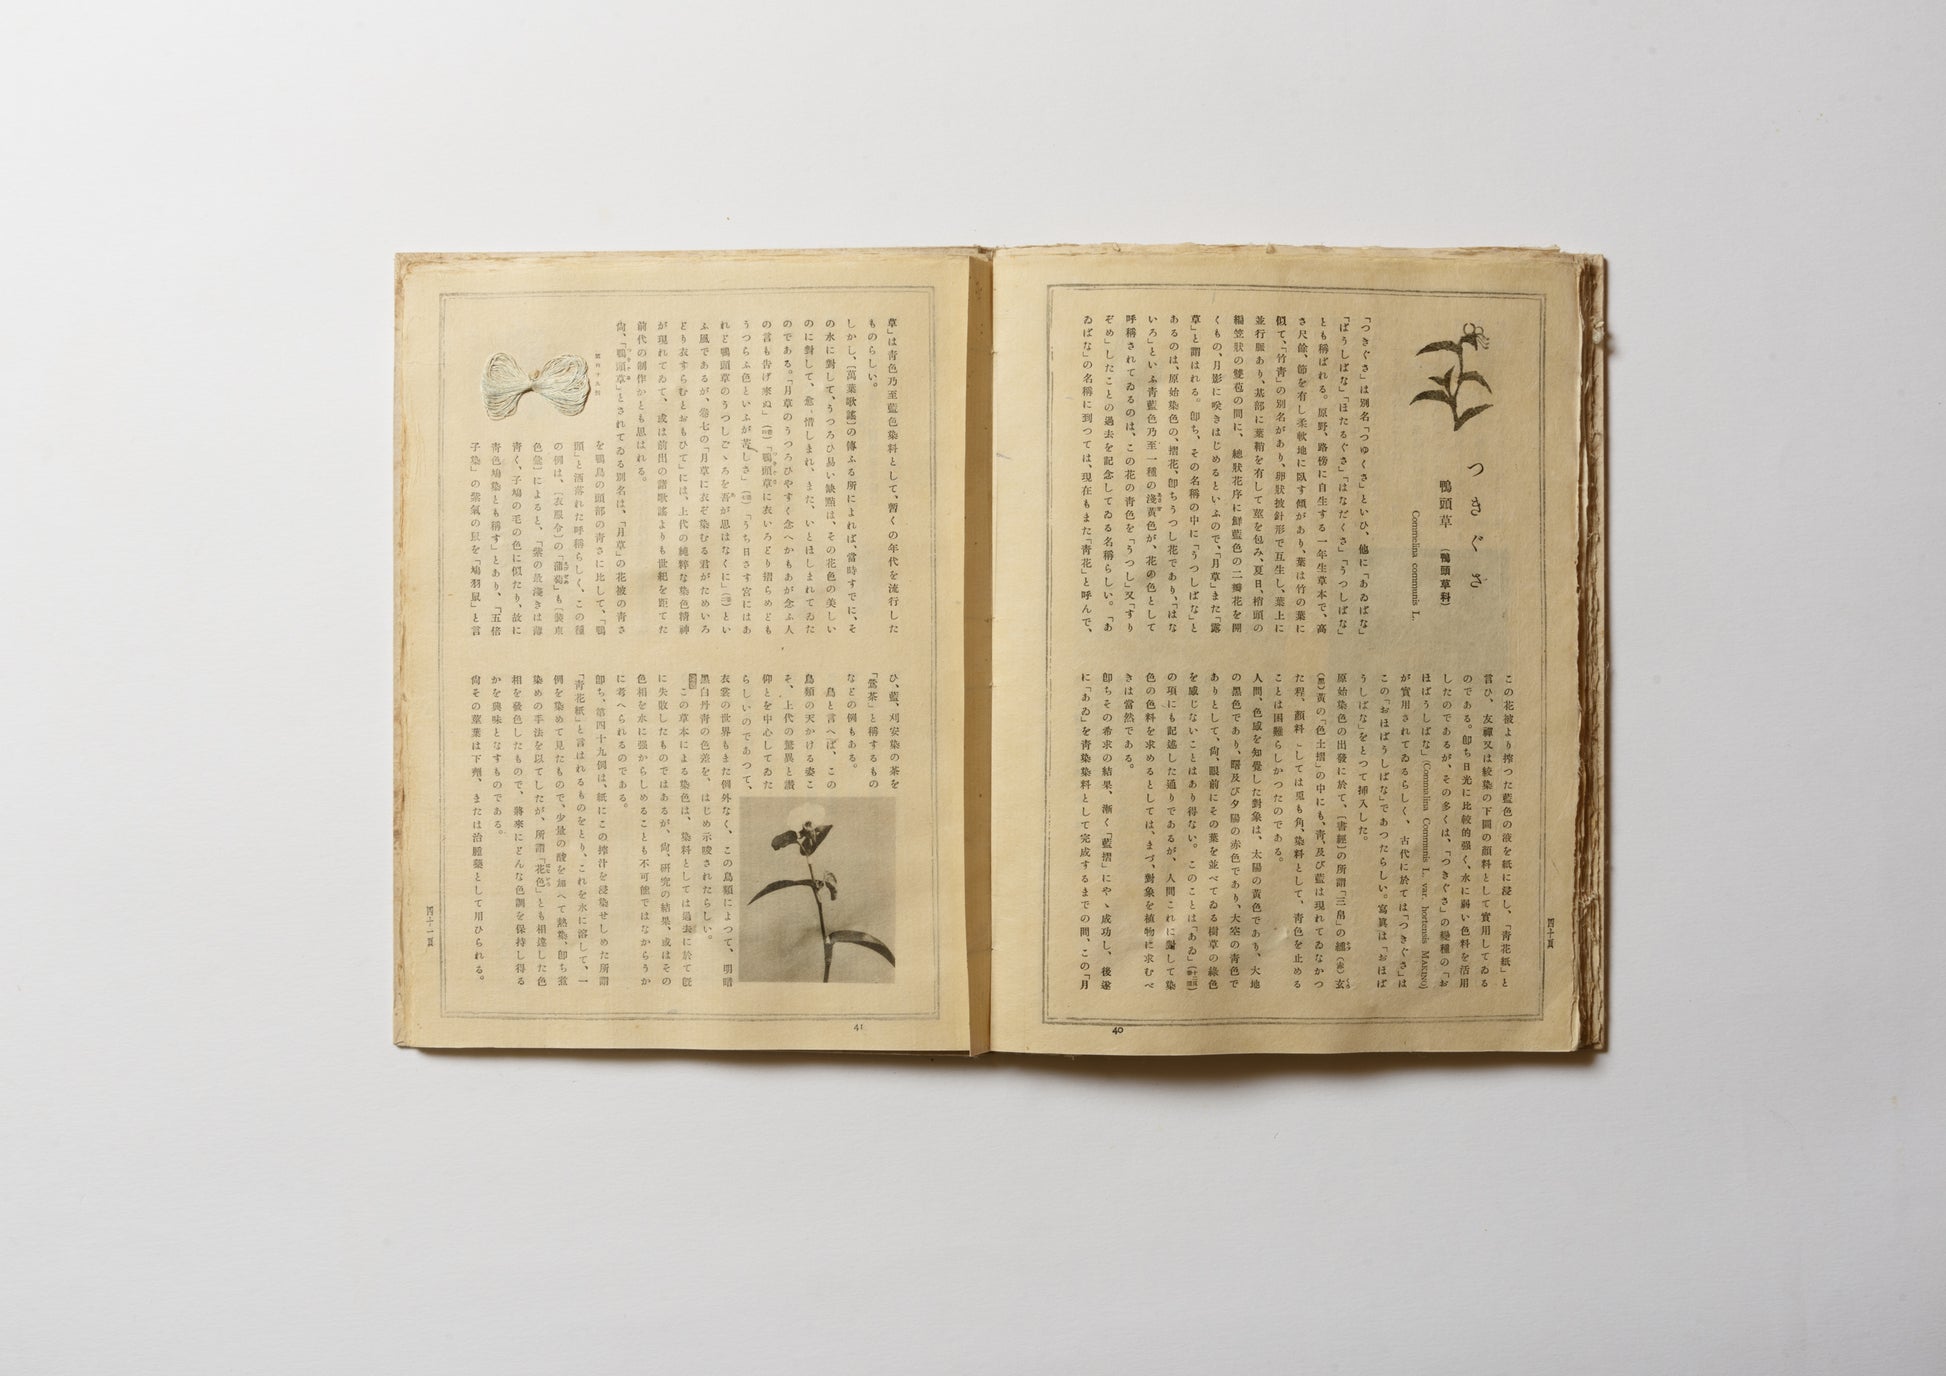 つきぐさ
鴨頭草 (鴨頭草科)
Commelina communis L.
「つきぐさ」は別名「つゆくさ」といひ、他に「あゐばな」
「ばうしばな」「ほたるぐさ」「はなだぐさ」「うつしばな」
とも稱ばれる。原野、路傍に自生する一年生草本で、高
さ尺餘、節を有し柔軟地に臥す傾があり、葉は竹の葉に
似て、「竹靑」の別名があり、卵狀披針形で互生し、葉上に
並行脈あり、基部に葉鞘を有して莖を包み、夏日、梢頭の
編笠狀の雙苞の間に、總狀花序に鮮藍色の二瓣花を開
くもの、月影に咲きはじめるといふので、「月草」また「露
草」と謂はれる。卽ち、その名稱の中に「うつしばな」と
あるのは、原始染色の、摺花、卽ちうつし花であり、「はな
いろ」といふ靑藍色乃至一種の淺黃色が、花の色として
呼稱されてゐるのは、この花の靑色を「うつし」又「すり
ぞめ」したことの過去を記念してゐる名稱らしい。「あ
ゐばな」の名稱に到つては、現在もまた「靑花」と呼んで、
この花被より搾つた藍色の液を紙に浸し、「靑花紙」と
言ひ、友禪又は絞染の下圖の顏料として實用してゐる
のである。卽ち日光に比較的强く、水に弱い色料を活用
したのであるが、その多くは、「つきぐさ」の變種の「お
ほばうしばな」(Commelina Communis L. var. hortensis MAKINO)
が實用されてゐるらしく、古代に於ては「つきぐさ」は
この「おほばうしばな」であつたらしい。寫眞は「おほば
うしばな」をとつて挿入した。
原始染色の出發に於て、〔書經〕の所謂「三帛」の纁(赤)玄
(黑)黃の「色土摺」の中にも、靑、及び藍は現れてゐなかつ
た程、顏料としては兎も角、染料として、靑色を止める
ことは困難らしかつたのである。
人間、色感を知覺した對象は、太陽の黃色であり、大地
の黑色であり、曙及び夕陽の赤色であり、大空の靑色で
ありとして、尙、眼前にその葉を並べてゐる樹草の綠色
を感じないことはあり得ない。このことは「あゐ」
の項にも記述した通りであるが、人間これに對して染
色の色料を求めるとしては、まづ、對象を植物に求むべ
きは當然である。
卽ちその希求の結果、漸く「藍摺」にやゝ成功し、後遂
に「あゐ」を靑染染料として完成するまでの間、この「月
四十頁
40
草」は靑色乃至藍色染料として、暫くの年代を流行した
ものらしい。
しかし、〔萬葉歌謠〕の傳ふる所によれば、當時すでに、そ
の水に對して、うつろひ易い缺點は、その花色の美しい
のに對して、愈〻惜しまれ、また、いとほしまれてゐた
のである。「月草のうつろひやすく念へかもあが念ふ人
の言も告げ來ぬ」「鴨頭草に衣いろどり摺らめども
うつらふ色といふが苦しさ」「うち日さす宮にはあ
れど鴨頭草のうつしごゝろを吾が思はなくに」とい
ふ風であるが、卷七の「月草に衣ぞ染むる君がためいろ
どり衣すらむとおもひて」には、上代の純粹な染色精神
が現れてゐて、或は前出の諸歌謠よりも世紀を距てた
前代の制作かとも思はれる。
尙、「鴨頭草」とされてゐる別名は、「月草」の花被の靑さ
を鴨鳥の頭部の靑さに比して、「鴨
頭」と洒落れた呼稱らしく、この種
の例は、〔衣服令〕の「蒲萄」も〔裝束
色彙〕によると、「紫の最淺きは薄
靑く、子鳩の毛の色に似たり、故に
靑色鳩染とも稱す」とあり、「五倍
子染」の紫氣の鼠を「鳩羽鼠」と言
第四十九例
ひ、藍、刈安染の茶を
「鶯茶」と稱するもの
などの例もある。
鳥と言へば、この
鳥類の天かける姿こ
そ、上代の驚異と讃
仰とを中心してゐた
らしいのであつて、
衣裳の世界もまた例外なく、この鳥類によつて、明暗
黑白丹靑の色差を、はじめ示唆されたらしい。
この草本による染色は、染料としては過去に於て旣
に失敗したものではあるが、尙、硏究の結果、或はその
色相を水に强からしめることも不可能ではなからうか
に考へられるのである。
卽ち、第四十九例は、紙にこの搾汁を浸染せしめた所謂
「靑花紙」と言はれるものをとり、これを水に溶して、一
例を染めて見たもので、少量の酸を加へて熱染、卽ち煮
染めの手法を以てしたが、所謂「花色」とも相違した色
相を發色したもので、將來にどんな色調を保持し得る
かを興味となすものである。
尙その莖葉は下劑、または治腫藥として用ひられる。
四十一頁
41